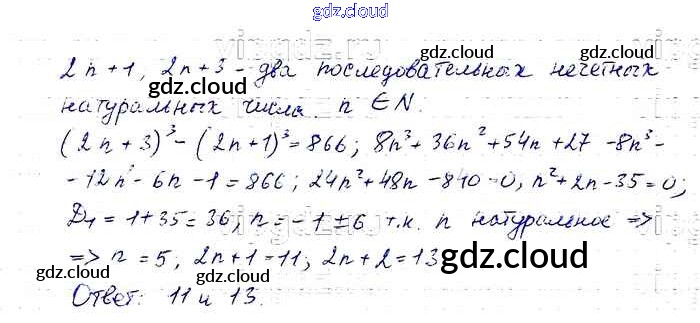 gdz.cloud
2n+1, 2n+3 - два последовательных нечетных
gdz.cloud gdz.cloud
gdz.cloud
натуральных числа. n ∈ N.
(2n+3)³-(2n+1)³=866; 8n³+36n²+54n+27-8n³-
-12n²-6n-1=866; 24n²+48n-840=0, n²+2n-35=0;
D₁=1+35=36; n=-1±6 т.к. n натуральное =>
gdz.cloud gdz.cloud
=> n=5, 2n+1=11; 2n+2=13
gdz.cloud
gdz.cloud
Ответ: 11 и 13.